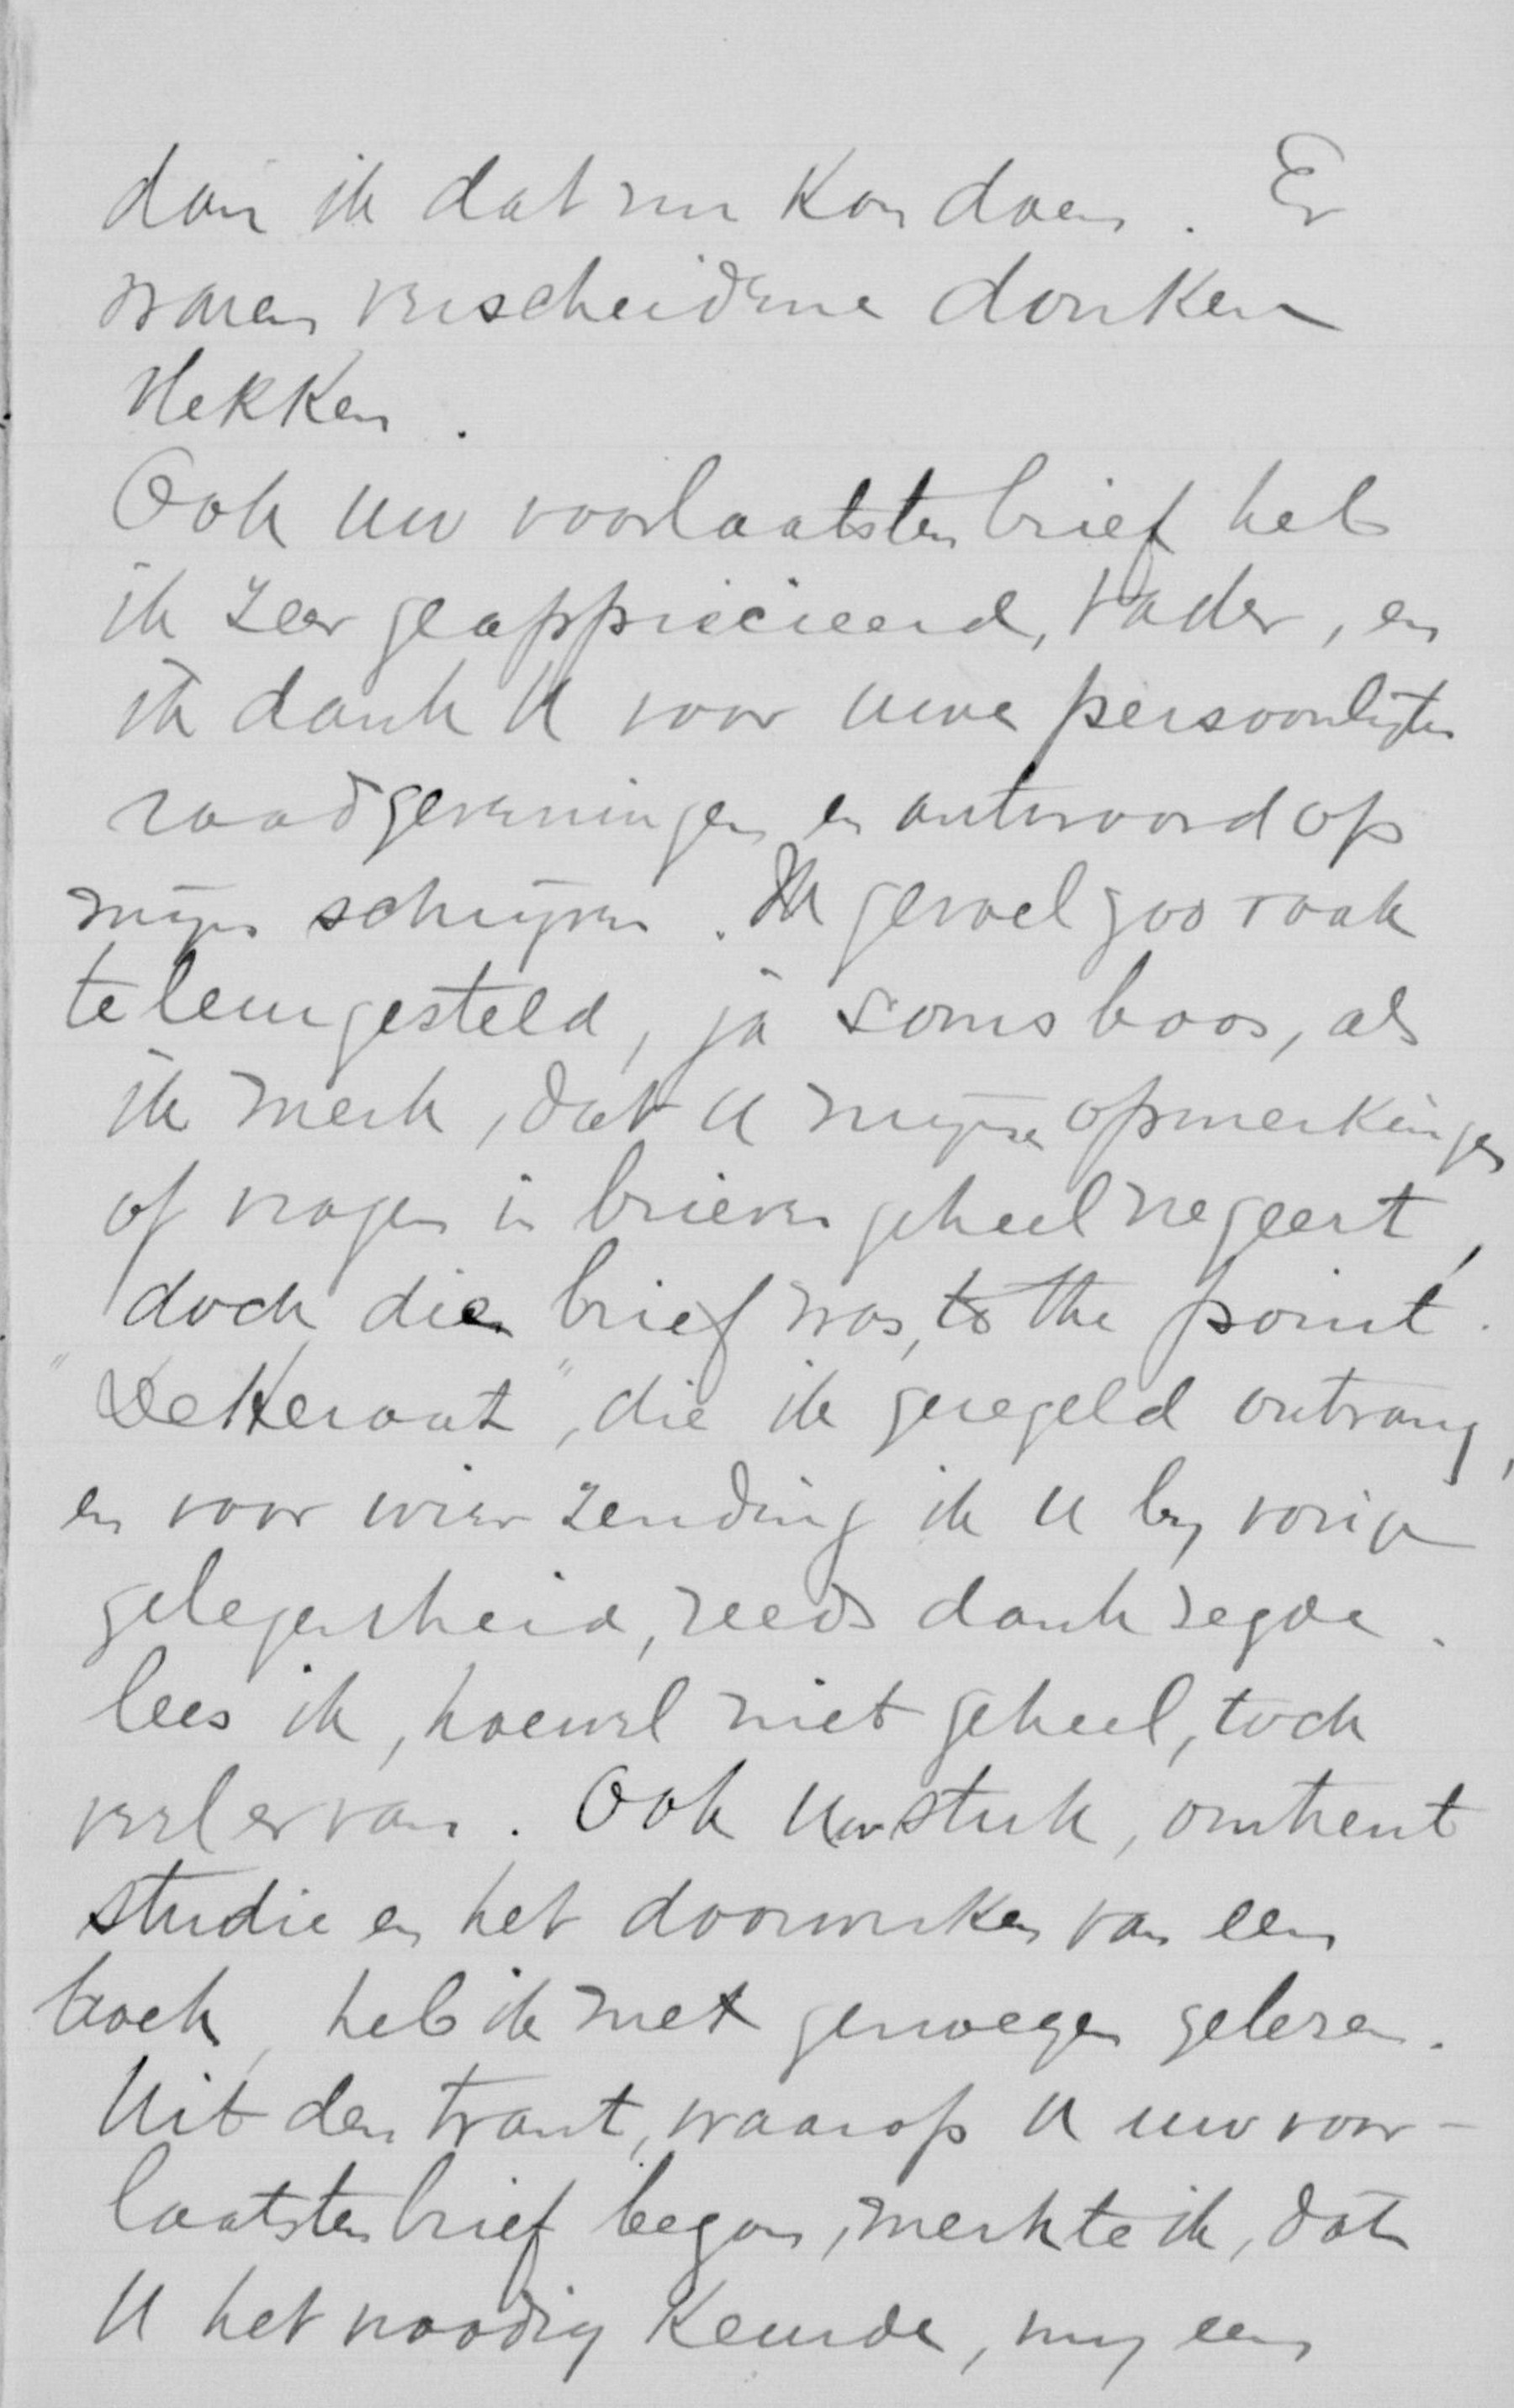 dan ik dat nu kon doen. Er
waren verscheidene donkere
vlekken.
Ook uw voorlaatsten brief heb
ik zeer geapprecieerd, Vader, en
ik dank U voor uwe persoonlijke
raadgevingen en antwoord op
mijn schrijven. Ik gevoel zoo vaak
teleurgesteld, ja soms boos, als
ik merk, dat U mijne opmerkingen
of vragen in brieven geheel negeert,
doch die brief was, to the point.
"De Heraut", die ik geregeld ontvang,
en voor wier zending ik U bij vorige
gelegenheid, reeds dank zegde.
lees ik, hoewel niet geheel, toch
veel ervan. Ook Uw stuk, omtrent
studie en het doorwerken van een
boek, heb ik met genoegen gelezen.
Uit den trant, waarop U uw voor-
laatsten brief begon, merkte ik, dat
U het noodig keurde, mij een